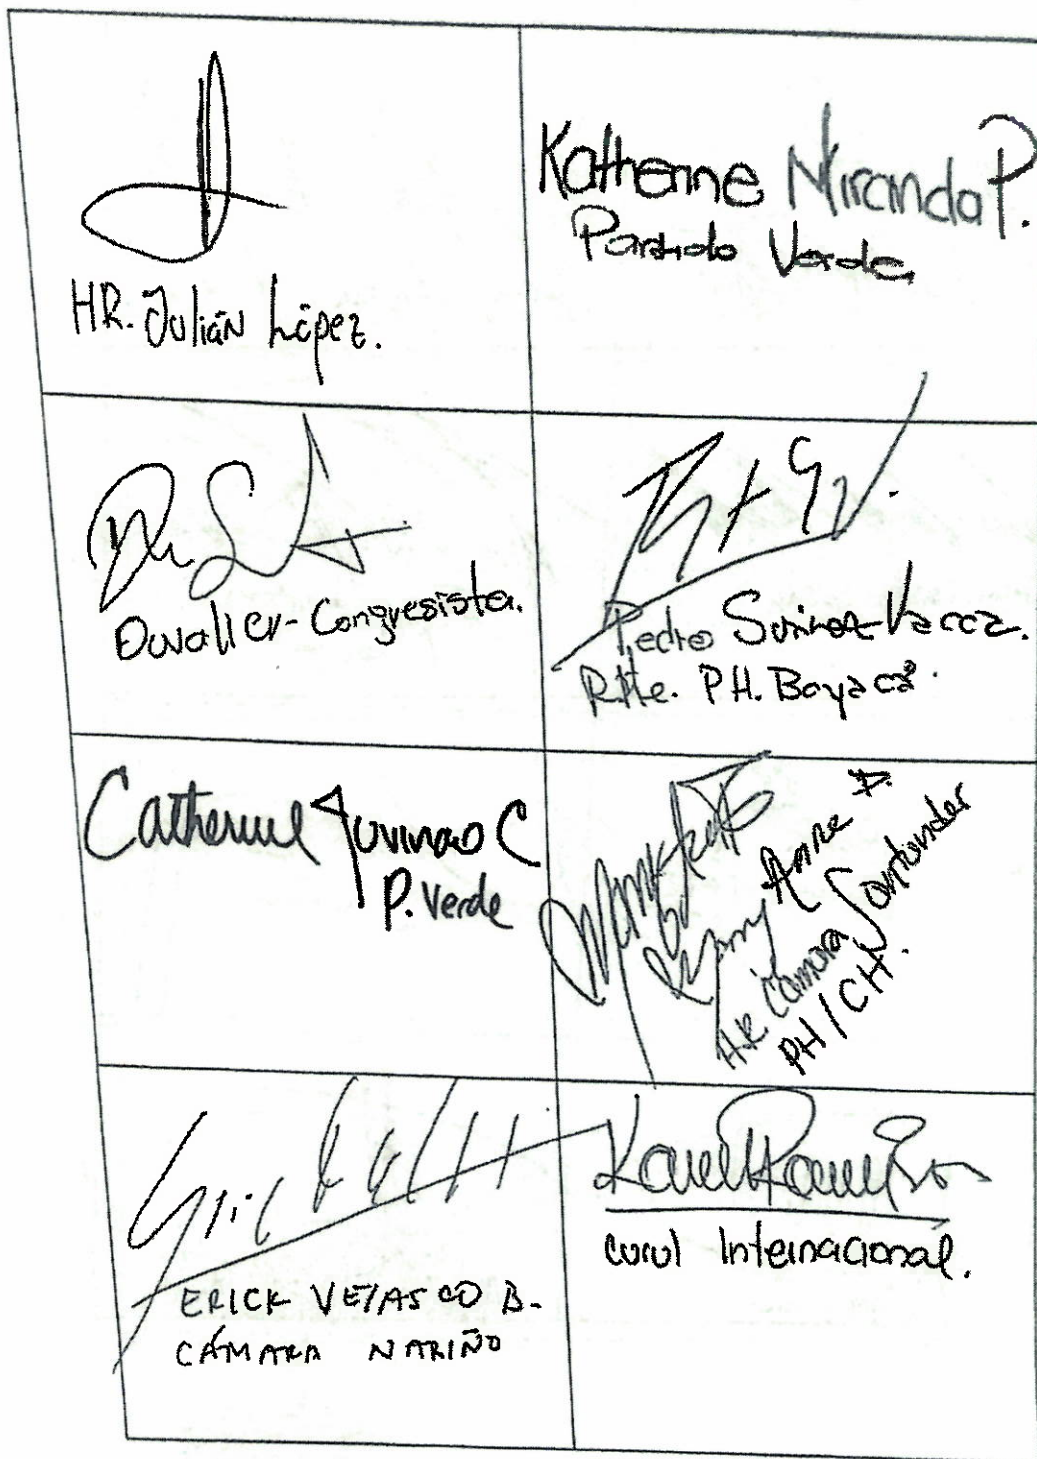 HR. Julián López.
Katherine Miranda P.
Partido Verde
Duvalier - Congresista.
Pedro Suárez Vacca.
Rpte. P.H. Boyacá.
Catherine Juvinao C
P. Verde
HR. Cámara Santander
PH/CH.
ERICK VELASCO B.
CÁMARA NARIÑO
Karmen Ramírez
curul Internacional.